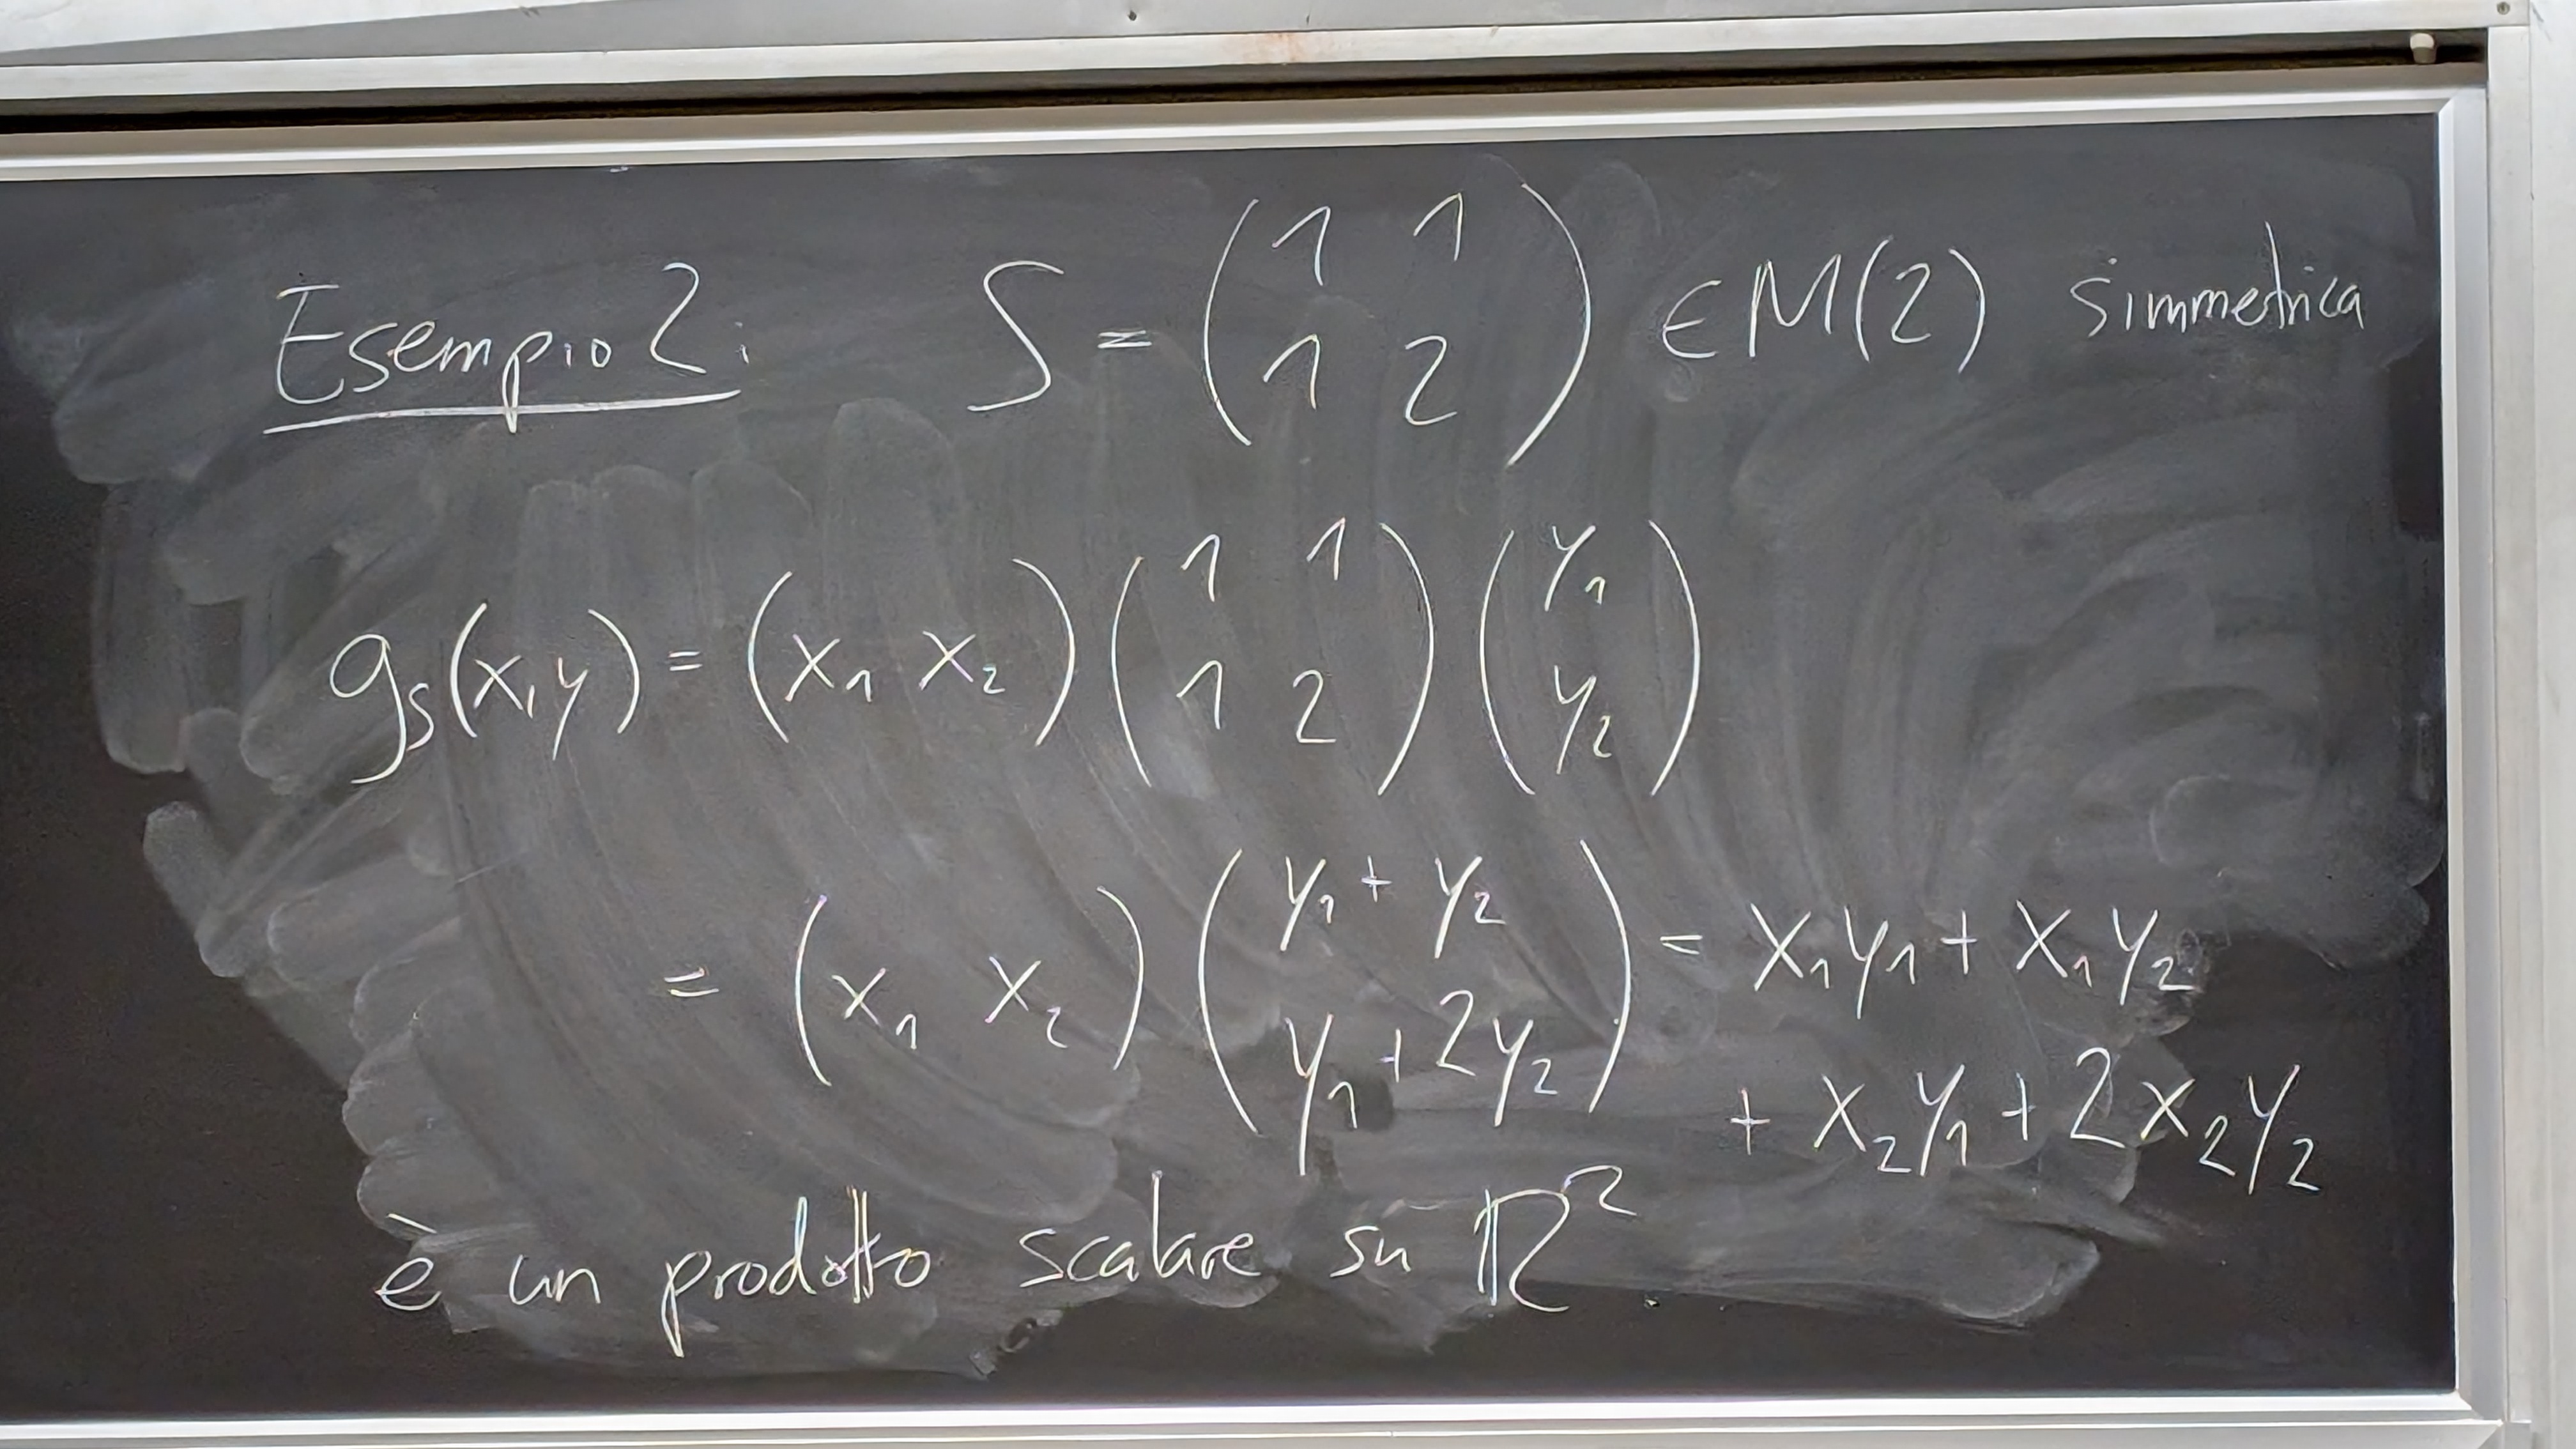 Esempio 2: S = ( 1 1 ; 1 2 ) ∈ M(2) simmetrica
g_S(x,y) = (x₁ x₂) ( 1 1 ; 1 2 ) ( y₁ ; y₂ )
= (x₁ x₂) ( y₁ + y₂ ; y₁ + 2y₂ ) = x₁y₁ + x₁y₂
+ x₂y₁ + 2x₂y₂
è un prodotto scalare su ℝ².